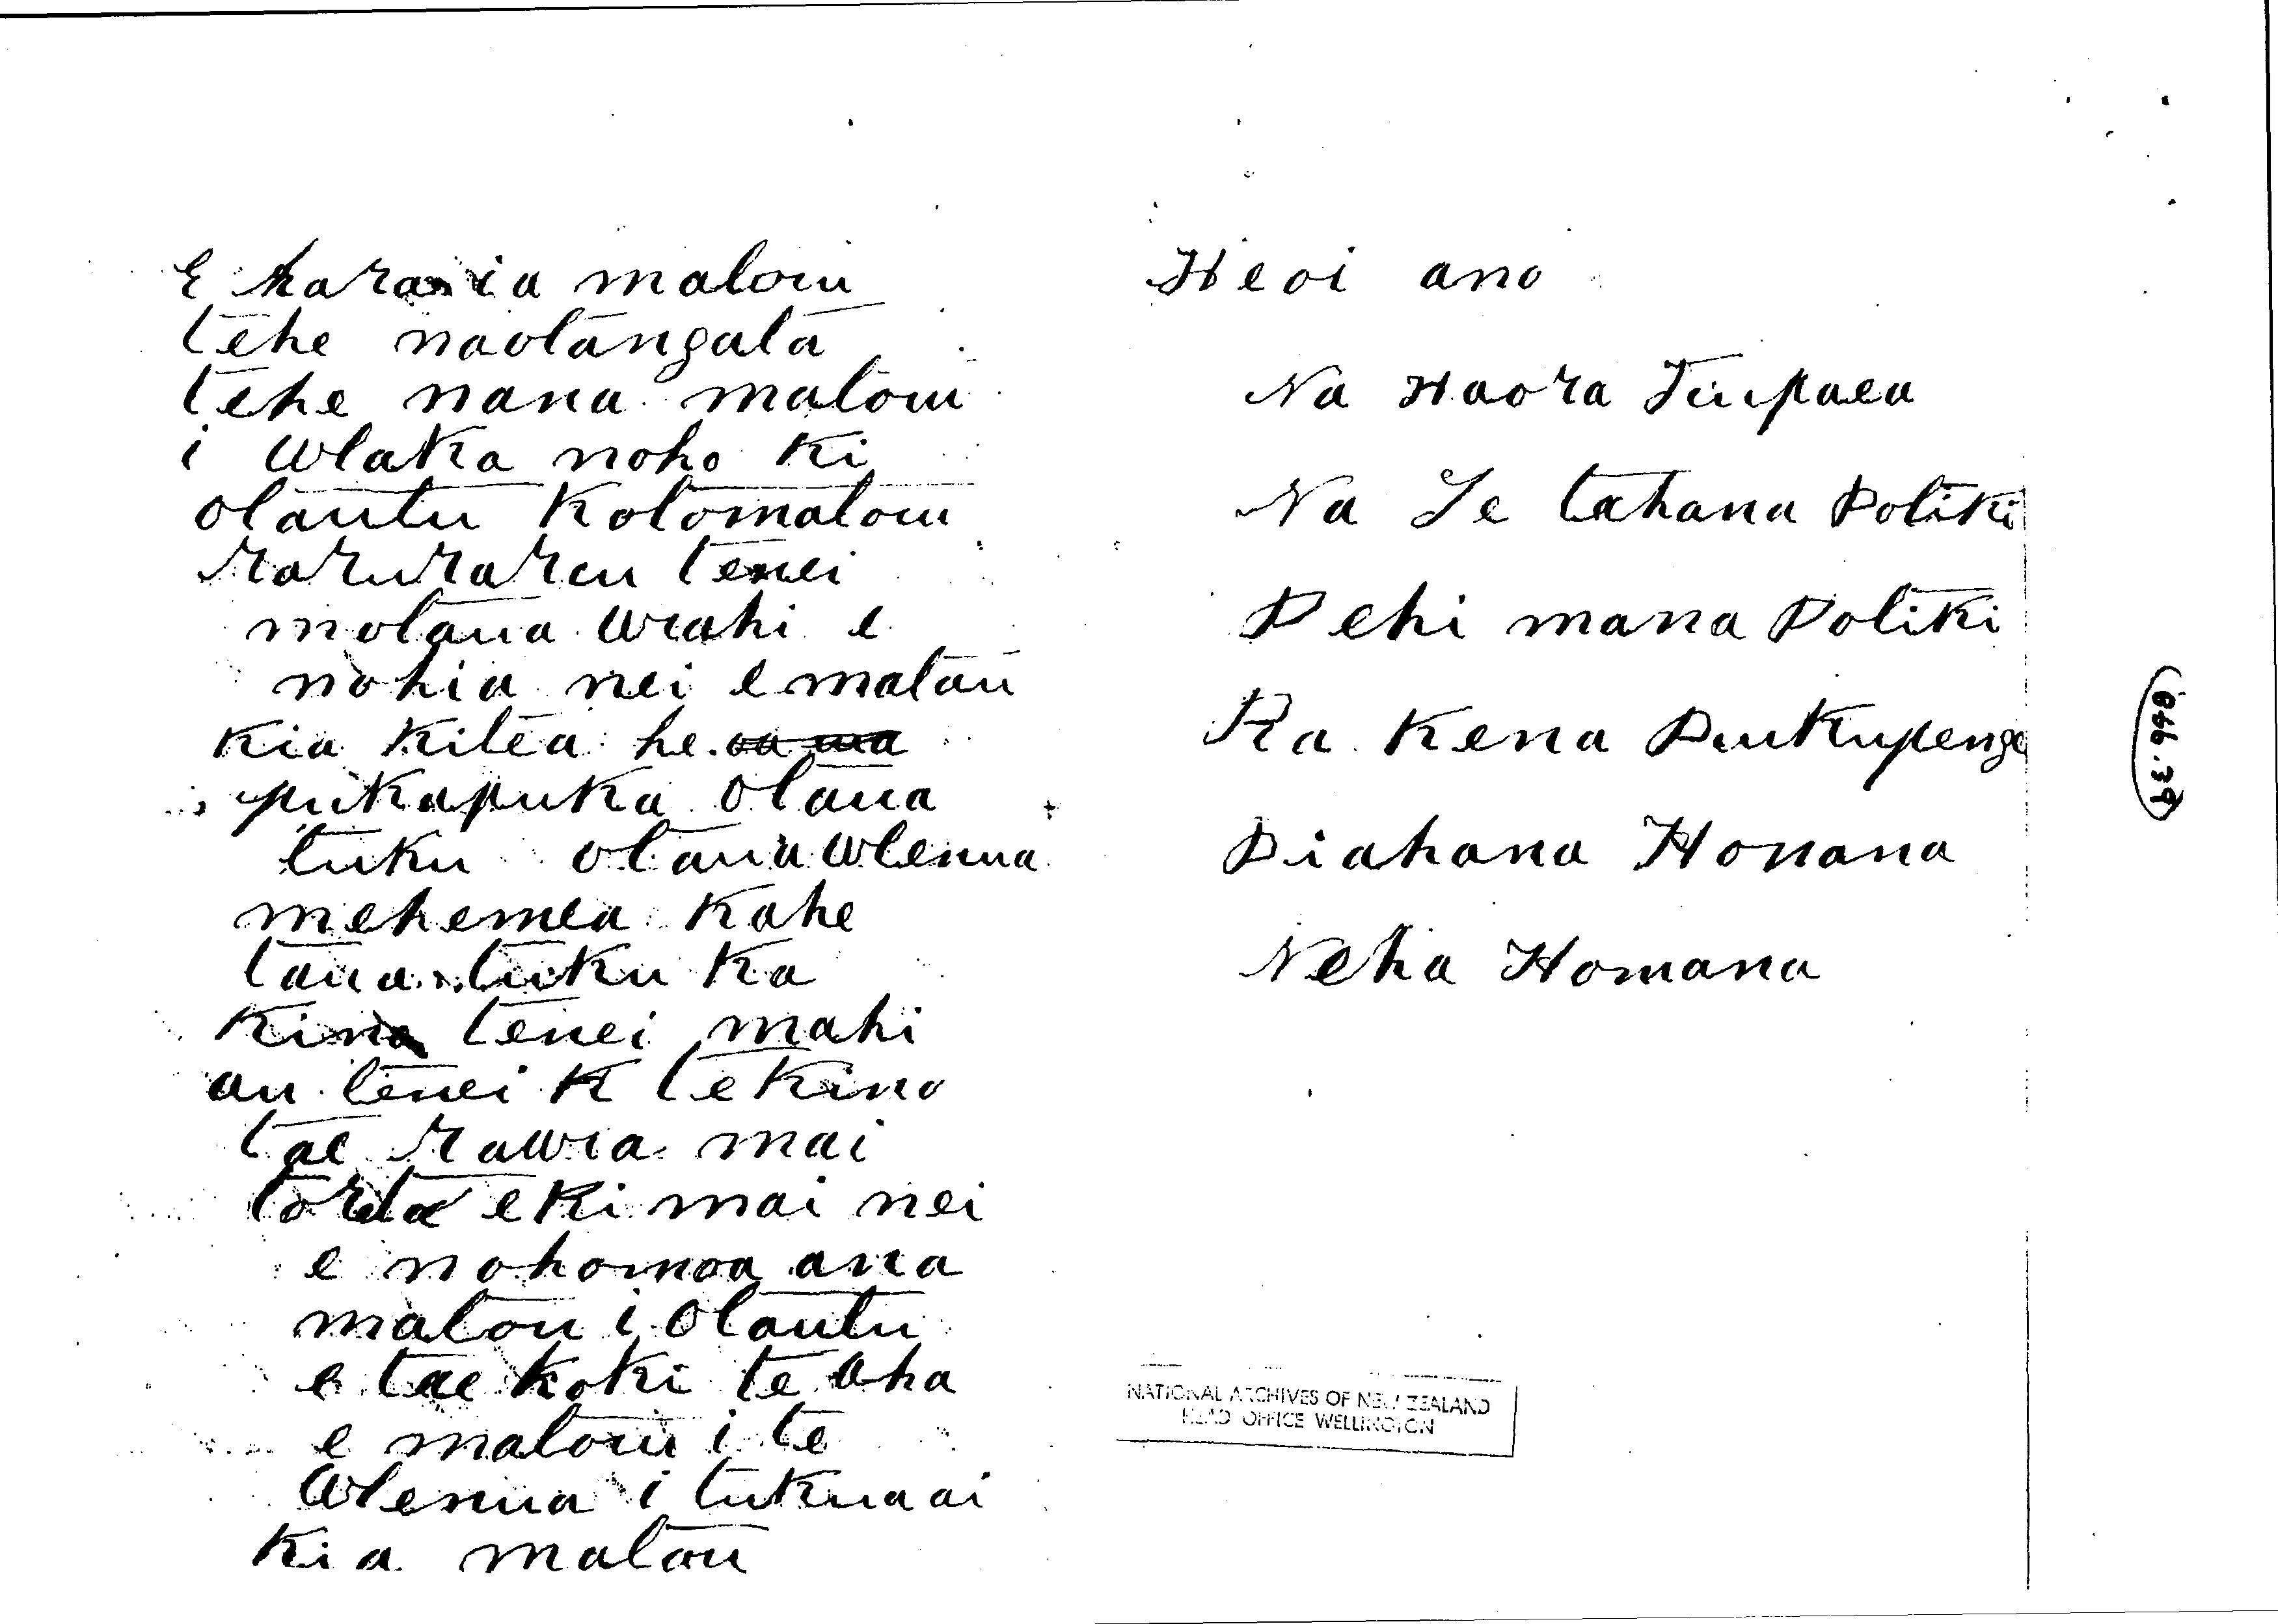 E karaxia matou
tehe naotangata
tehe nana matou
i Wlaka noho ki
Otautu Kotomatou
raruraru tenei
motaua wahi e
nohia nei ematou
kia kitea he
pukapuka otaua
tuku otauawlenua
mehemea kahe
taua tuku ka
kino tenei mahi
au tenei k tekino
tae rawa mai
ekimai nei
e nohonoa ana
matou i Otautu
e tae koki te aha
e matou i te
Wlenua i tukuaai
kia matou
Heoi ano
Na Haora Tuupaea
Na Te tahana Potiki
Pehi mana Potiki
Ra Kena Puukupenga
Piahana Honana
Neha Homana
866.34
NATIONAL ARCHIVES OF NEW ZEALAND
HEAD OFFICE WELLINGTON